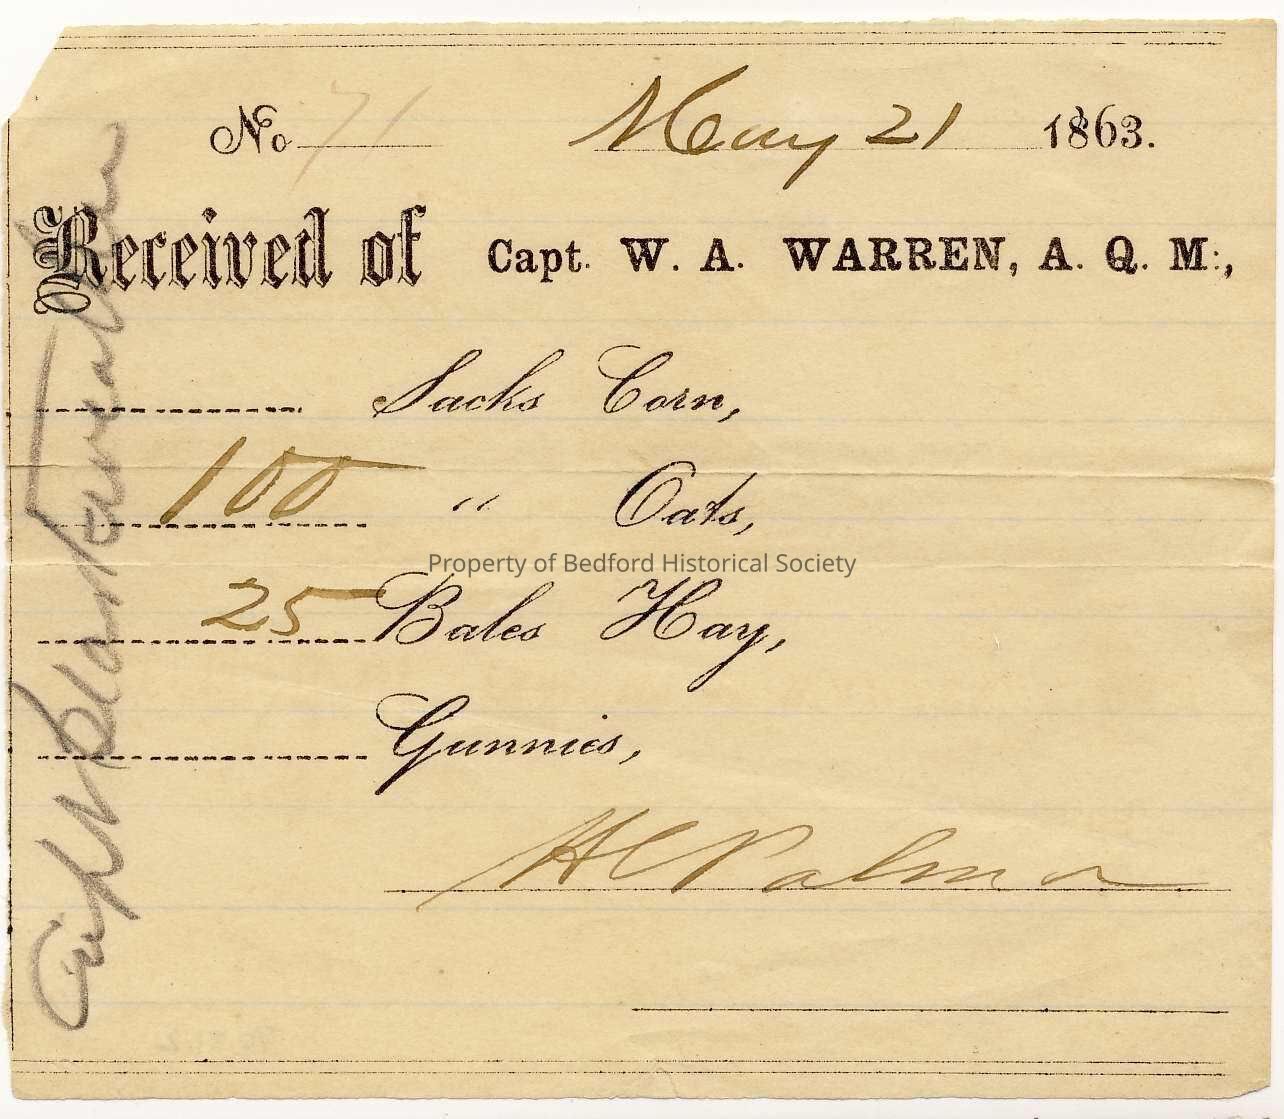 No 71 May 21 1863.
Received of Capt. W. A. WARREN, A. Q. M.,
Sacks Corn,
100 " Oats,
Property of Bedford Historical Society
25 Bales Hay,
Gunnies,
H C Palmer
Capt